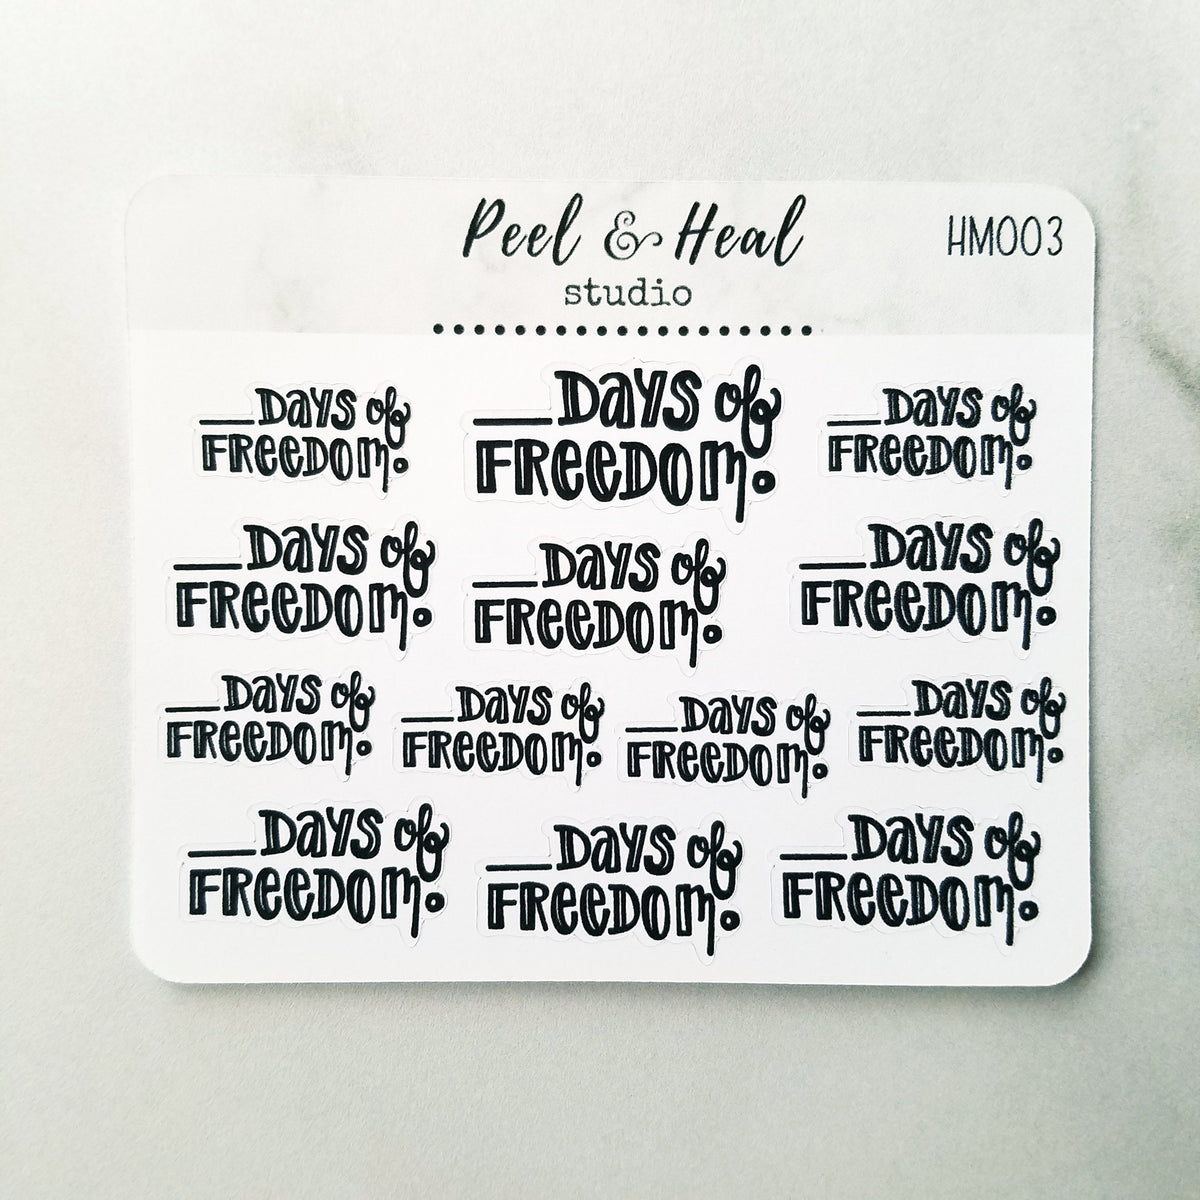 Peel & Heal
studio
HM003
__Days of
Freedom.
__Days of
Freedom.
__Days of
Freedom.
__Days of
Freedom.
__Days of
Freedom.
__Days of
Freedom.
__Days of
Freedom.
__Days of
Freedom.
__Days of
Freedom.
__Days of
Freedom.
__Days of
Freedom.
__Days of
Freedom.
__Days of
Freedom.